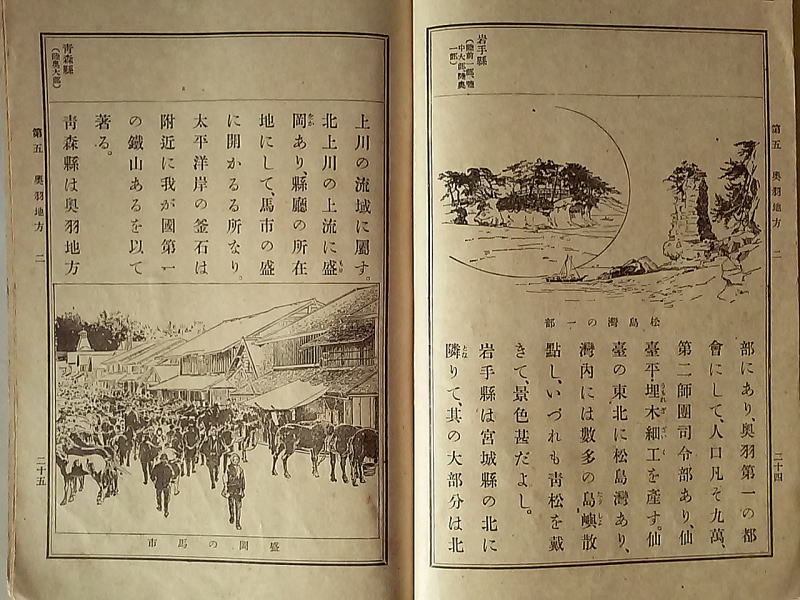 岩手縣
(陸前一郡、陸
中大部、陸奥
一部)
第五 奥羽地方 二
二十四
松島灣の一部
部にあり、奥羽第一の都
會にして、人口凡そ九萬、
第二師團司令部あり、仙
臺平、埋木細工を產す。仙
臺の東北に松島灣あり、
灣內には數多の島嶼散
點し、いづれも靑松を戴
きて、景色甚だよし。
岩手縣は宮城縣の北に
隣りて、其の大部分は北
靑森縣
(陸奥大部)
第五 奥羽地方 二
二十五
上川の流域に屬す。
北上川の上流に盛
岡あり、縣廳の所在
地にして、馬市の盛
に開かるる所なり。
太平洋岸の釜石は
附近に我が國第一
の鐵山あるを以て
著る。
靑森縣は奥羽地方
盛岡の馬市